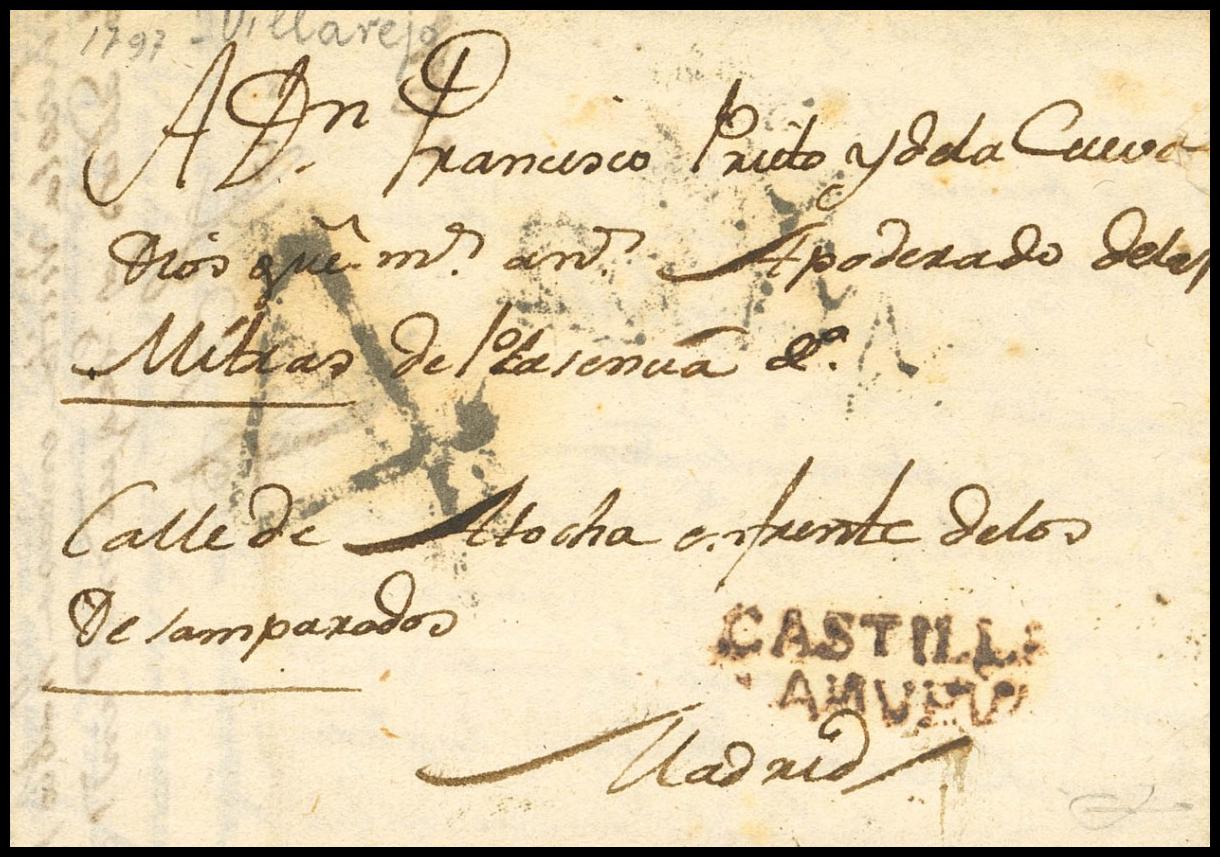 1797 - Villarejo
A Dn. Francisco Prieto y de la Cueva
Dios gue. ms. as. Apoderado delas
Mitras de Plasencia &a.
Calle de Atocha enfrente delos
Desamparados
CASTILLA
Madrid